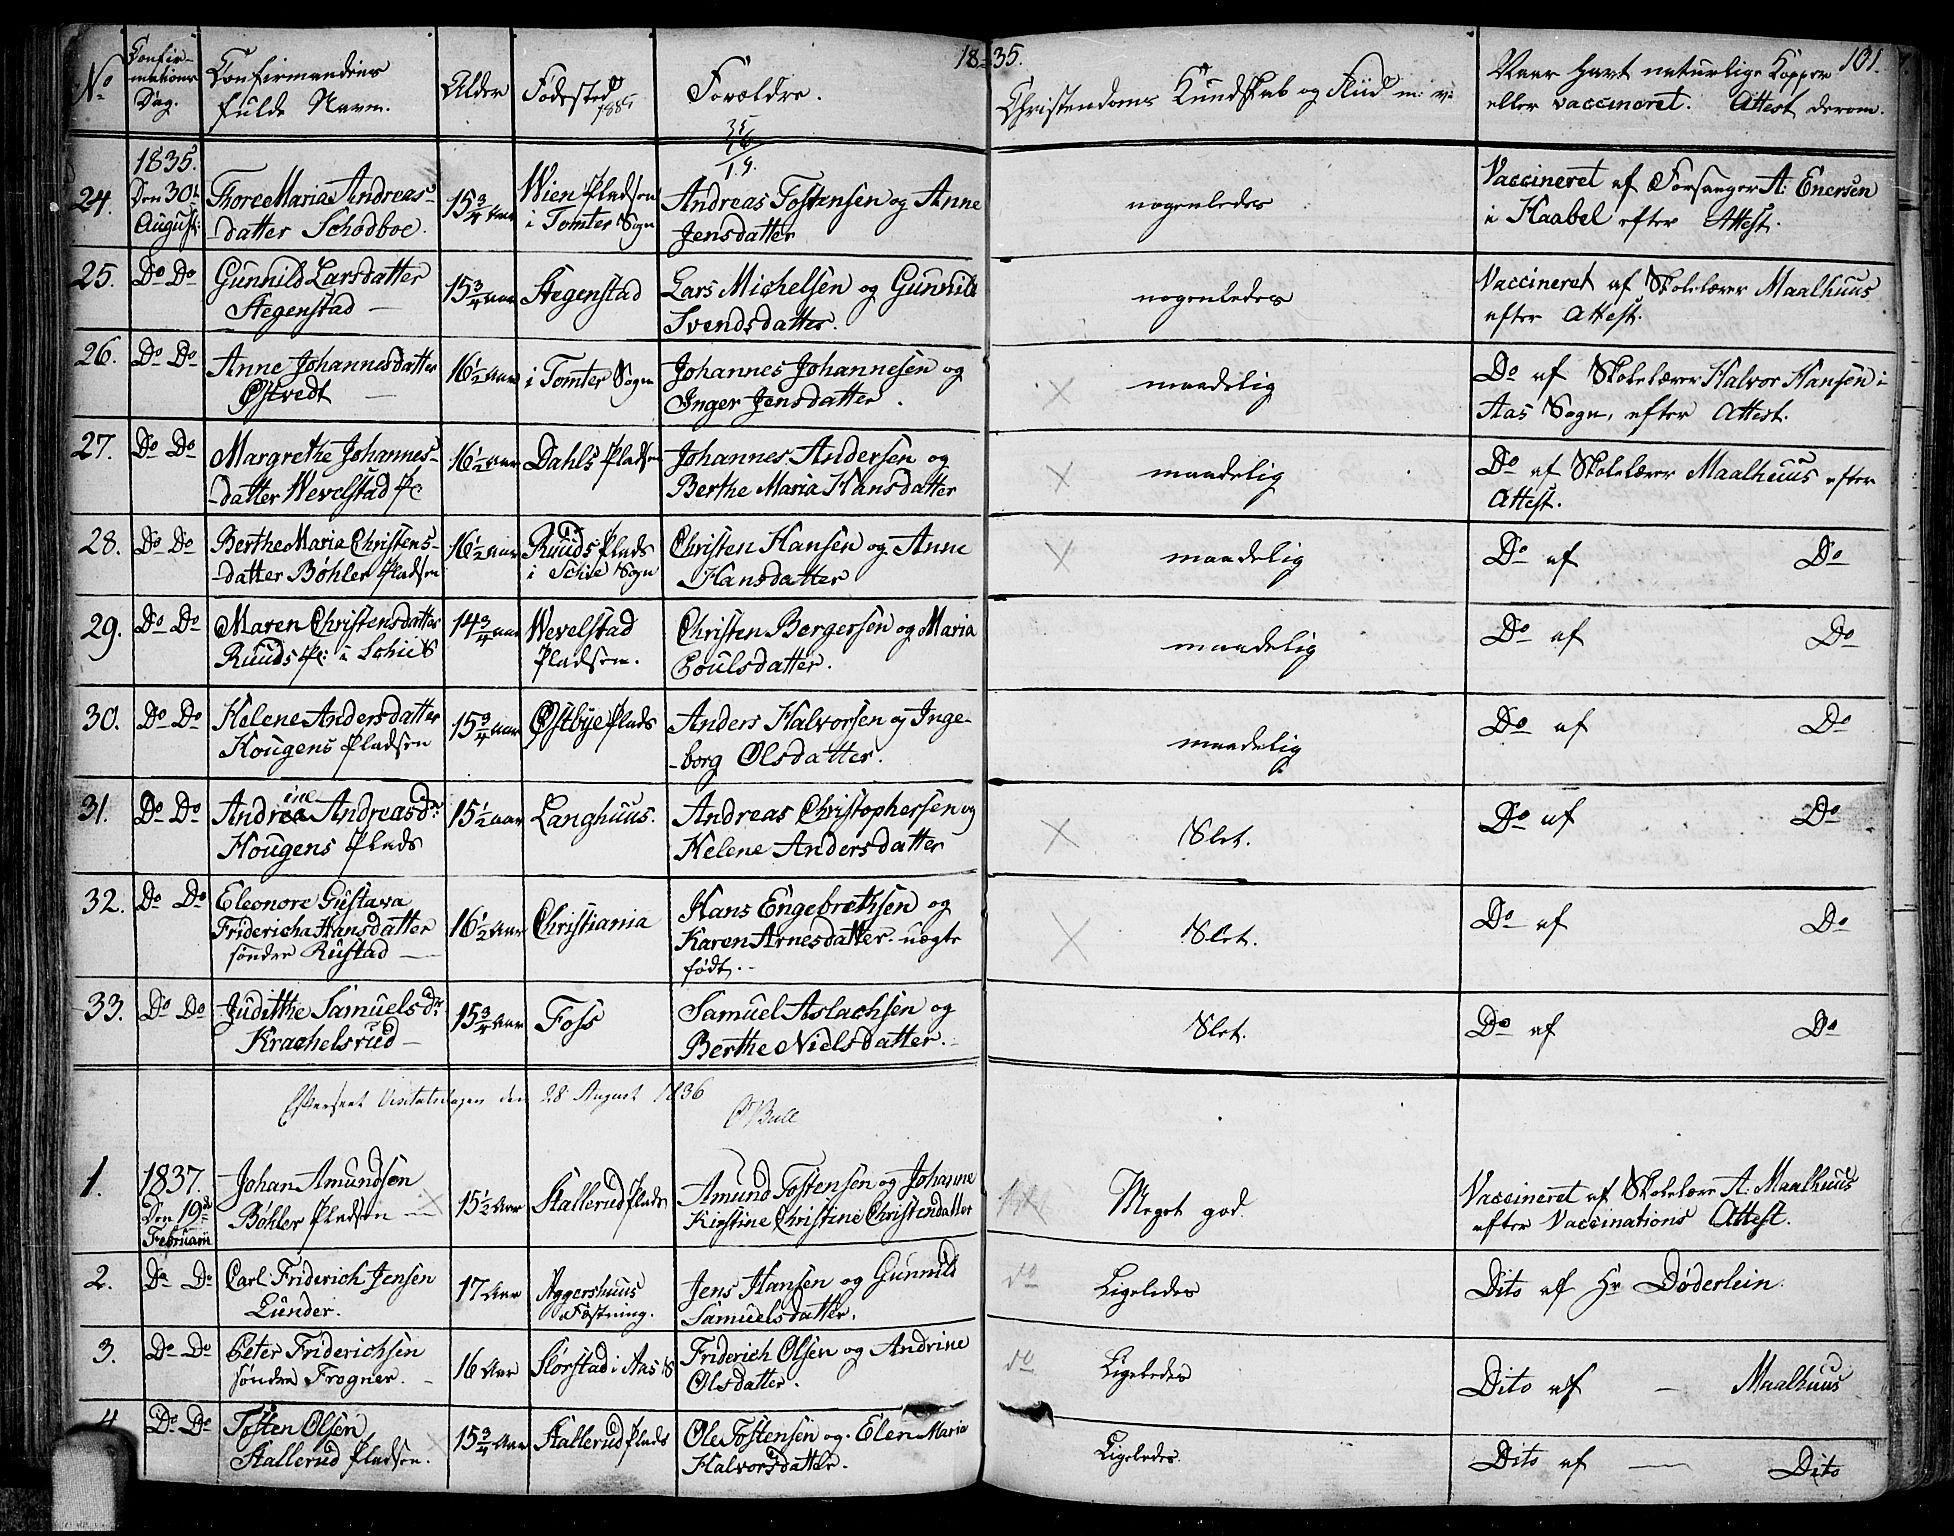 18 35.
101.
No
Confir-
mations
Dag.
Confirmandens
fulde Navn.
Alder
Fødested
Forældre.
Christendoms Kundskab og Flid m: v:
Naar havt naturlige Kopper
eller vaccineret. Attest derom.
35
16
19.
24.
1835.
Den 30te
August.
Thore Maria Andreas-
-datter Schodboe.
15 3/4 Aar
Wien Pladsen
i Tomter Sogn
Andreas Tostensen og Anne
Jensdatter
nogenledes
Vaccineret af Forsanger A: Enersen
i Haabel efter Attest.
25.
Do Do
Gunnild Larsdatter
Stegenstad —
15 3/4 aar
Stegenstad
Lars Michelsen og Gunnild
Svendsdatter.
nogenledes
Vaccineret af Skolelærer Maalhuus
efter Attest.
26.
Do Do
Anne Johannesdatter
Østvedt —
16 1/2 Aar
i Tomter Sogn
Johannes Johannesen og
Inger Jensdatter.
maadelig
Do af Skolelærer Halvor Hansen i
Aas Sogn, efter Attest.
27.
Do Do
Margrethe Johannes-
-datter Wevelstad Pl:
16 1/2 Aar
Dahls Pladsen
Johannes Andersen og
Berthe Maria Hansdatter
maadelig
Do af Skolelærer Maalhuus efter
Attest.
28.
Do Do
Berthe Maria Christens-
-datter Bøhler Pladsen
16 1/2 aar
Ruuds Plads
i Schie Sogn
Christen Hansen og Anne
Hansdatter
maadelig
Do af Do
29.
Do Do
Maren Christensdatter
Ruuds Pl: i Schie S
14 3/4 aar
Wevelstad
Pladsen.
Christen Bergersen og Maria
Poulsdatter.
maadelig
Do af Do
30.
Do Do
Helene Andersdatter
Hougens Pladsen
15 3/4 aar
Østbye Plads
Anders Halvorsen og Inge-
-borg Olsdatter.
maadelig
Do af Do
31.
Do Do
ine
Andrea Andreasdr
Hougens Plads
15 1/2 aar
Langhuus.
Andreas Christophersen og
Helene Andersdatter
Slet.
Do af Do
32.
Do Do
Eleonore Gustava
Fridericha Hansdatter
søndre Rustad —
16 1/2 Aar
Christiania
Hans Engebrethsen og
Karen Arnesdatter. uægte
født.-
Slet.
Do af Do
33.
Do Do
Judithe Samuelsdr
Krachelsrud —
15 3/4 Aar
Foss
Samuel Aslachsen og
Berthe Nielsdatter.
Slet.
Do af Do
Efterseet Visitatsdagen den 28 August 1836
Bull
1.
1837.
Den 19de
Februarii
Johan Amundsen
Bøhler Pladsen —
15 1/2 Aar
Stallerud Plads
Amund Tostensen og Johanne
Kirstine Christine Christendatter
Meget god.
Vaccineret af Skolelære A: Maalhuus
efter Vaccinations Attest.
2.
Do Do
Carl Friderich Jensen
Lunder.
17 Aar
Aggershuus
Fæstning.
Jens Hansen og Gunnild
Samuelsdatter.
do
Ligeledes
Dito af Hr Døderlein.
3.
Do Do
Peter Friderichsen
søndre Frogner. —
16 Aar
Storstad i Aas S
Friderich Olsen og Andrine
Olsdatter.
do
Ligeledes
Dito af — Maalhuus
4
Do Do
Tosten Olsen
Stallerud Pladsen.
15 3/4 Aar
Stallerud Plads
Ole Tostensen og Elen Maria
Halvorsdatter.
Ligeledes
Dito af — Dito